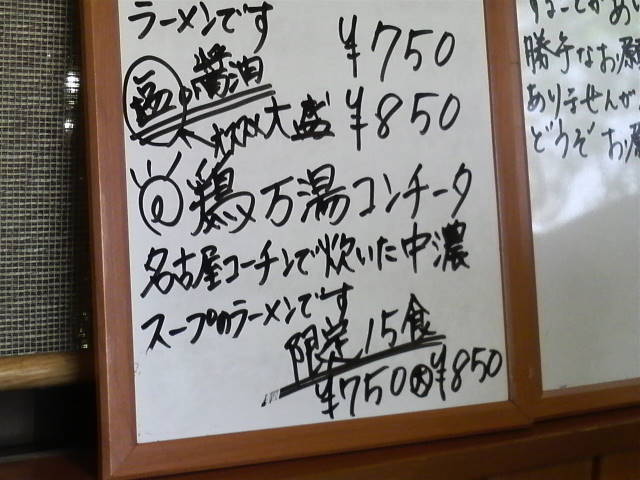 ラーメンです
塩 醤油 ¥750
オススメ 大盛 ¥850
鶏万湯コンチータ
名古屋コーチンで炊いた中濃
スープのラーメンです
限定15食
¥750 大 ¥850
勝手なお願
ありませんが
どうぞお願